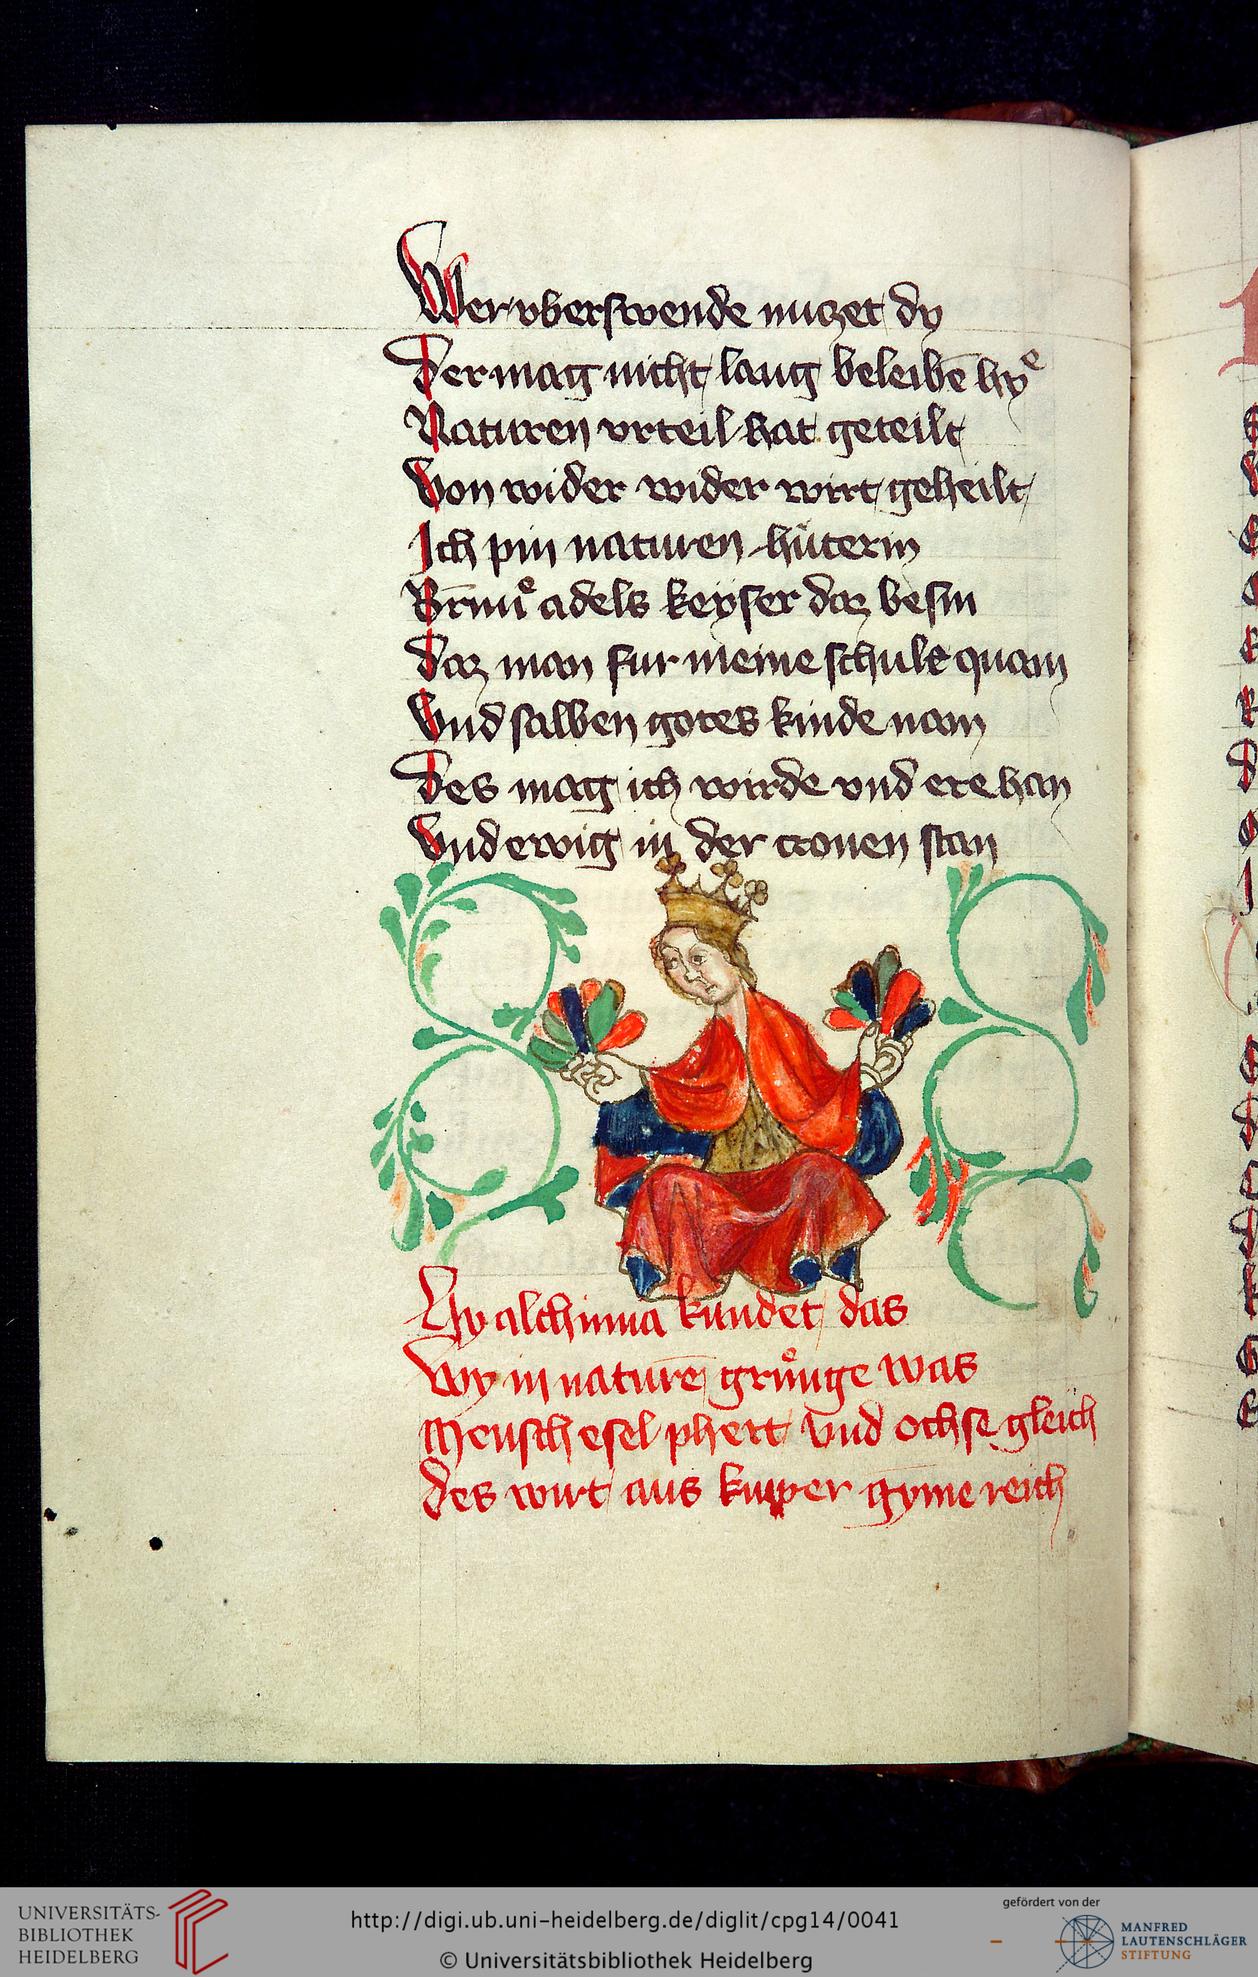 Wer vberswende nuczet dy
Der mag nicht lang beleibē hyͤ
Naturen vrteil hat geteilt
Von wider wider wirt geheilt
Ich pin naturen hüterin
adels keyser daz besin
daz man fur meine schult quam
Vnd salben gotes kinde nam
Des mag ich wirde vnd ere han
Vnd ewig in der cronen stan
Hy alchimia kundet das
Wy in naturē grůnge was
Mensch esel phert vnd ochse gleich
des wirt aus kupper gymereich
UNIVERSITÄTS-
BIBLIOTHEK
HEIDELBERG
http://digi.ub.uni-heidelberg.de/diglit/cpg14/0041
© Universitätsbibliothek Heidelberg
gefördert von der
MANFRED
LAUTENSCHLÄGER
STIFTUNG